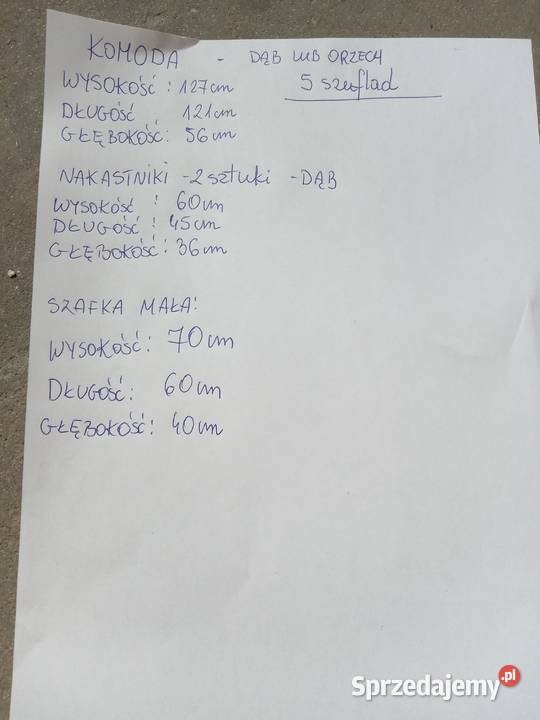 KOMODA - DĄB LUB ORZECH
WYSOKOŚĆ : 127cm 5 szuflad
DŁUGOŚĆ : 121cm
GŁĘBOKOŚĆ: 56cm
NAKASTNIKI - 2 sztuki - DĄB
WYSOKOŚĆ : 60cm
DŁUGOŚĆ : 45cm
GŁĘBOKOŚĆ : 36cm
SZAFKA MAŁA:
WYSOKOŚĆ: 70cm
DŁUGOŚĆ: 60cm
GŁĘBOKOŚĆ: 40cm
Sprzedajemy.pl